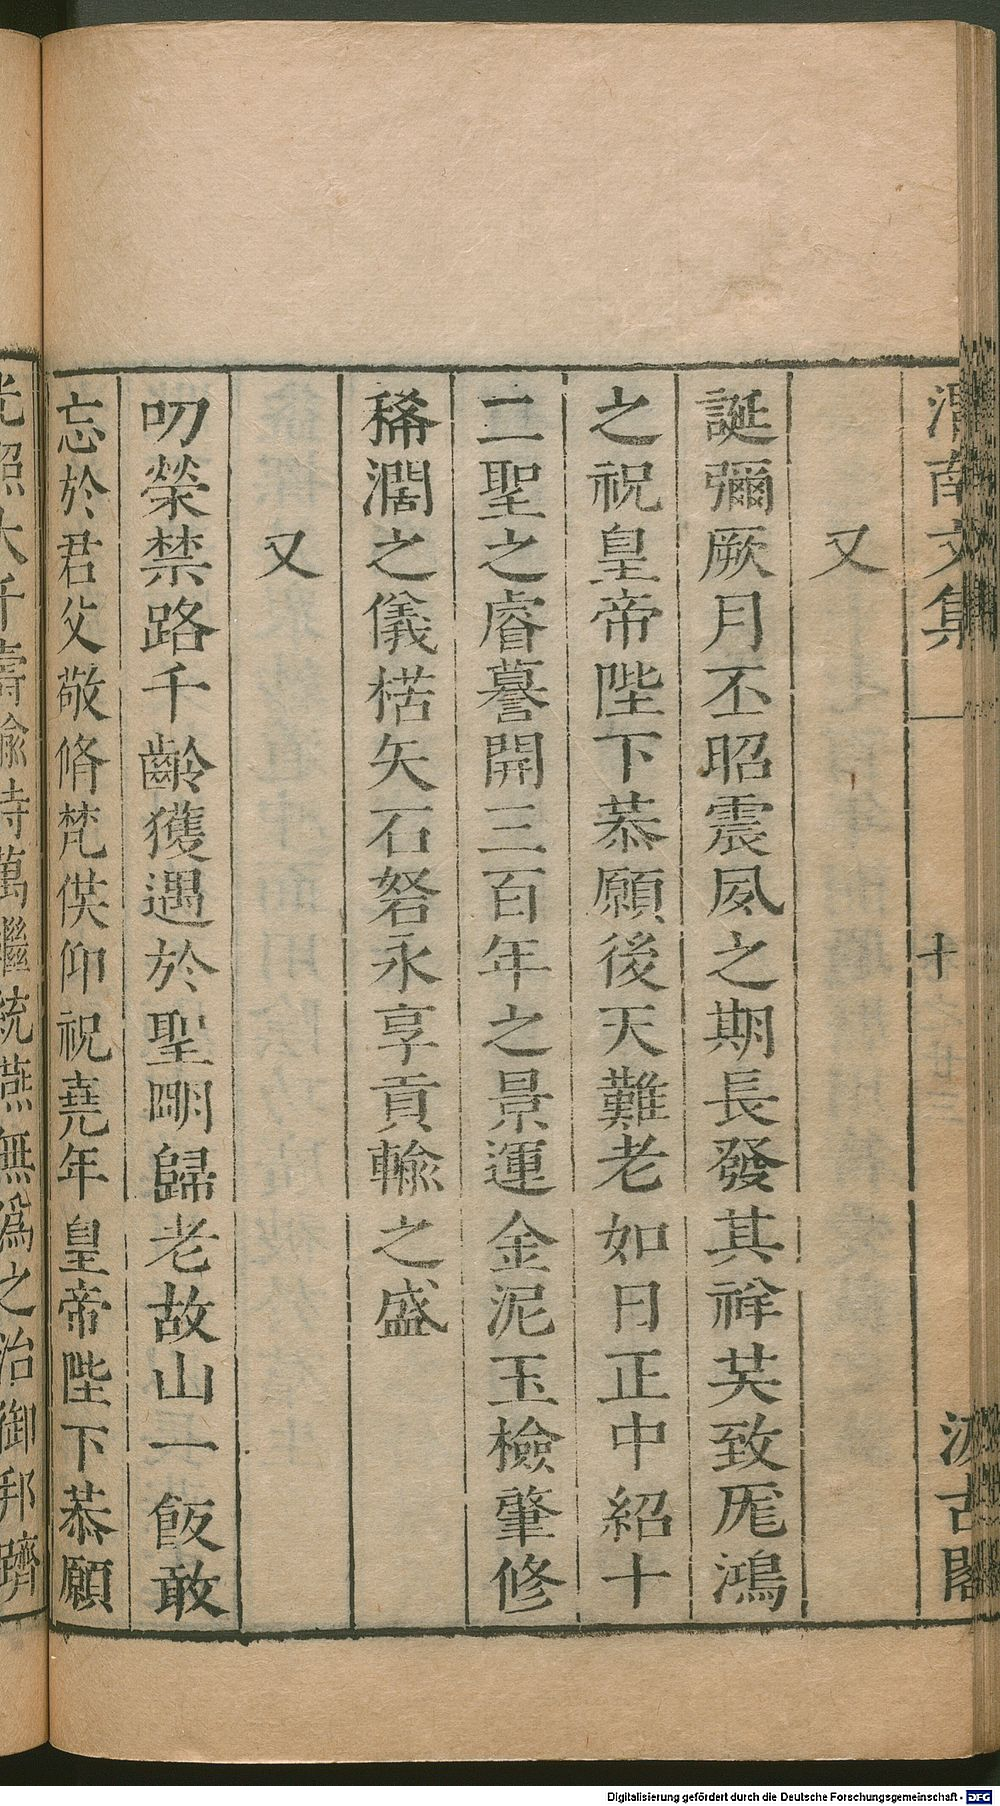 渭南文集 十 汲古閣
又
誕彌厥月丕昭震夙之期長發其祥芙致厖鴻
之祝皇帝陛下恭願後天難老如日正中紹十
二聖之睿謩開三百年之景運金泥玉檢肇修
稀濶之儀楛矢石砮永享貢輸之盛
又
叨榮禁路千齡獲遇於聖明歸老故山一飯敢
忘於君父敬脩梵供仰祝堯年皇帝陛下恭願
光照大千壽踰時萬繼統燕無爲之治御邦躋
Digitalisierung gefördert durch die Deutsche Forschungsgemeinschaft - DFG